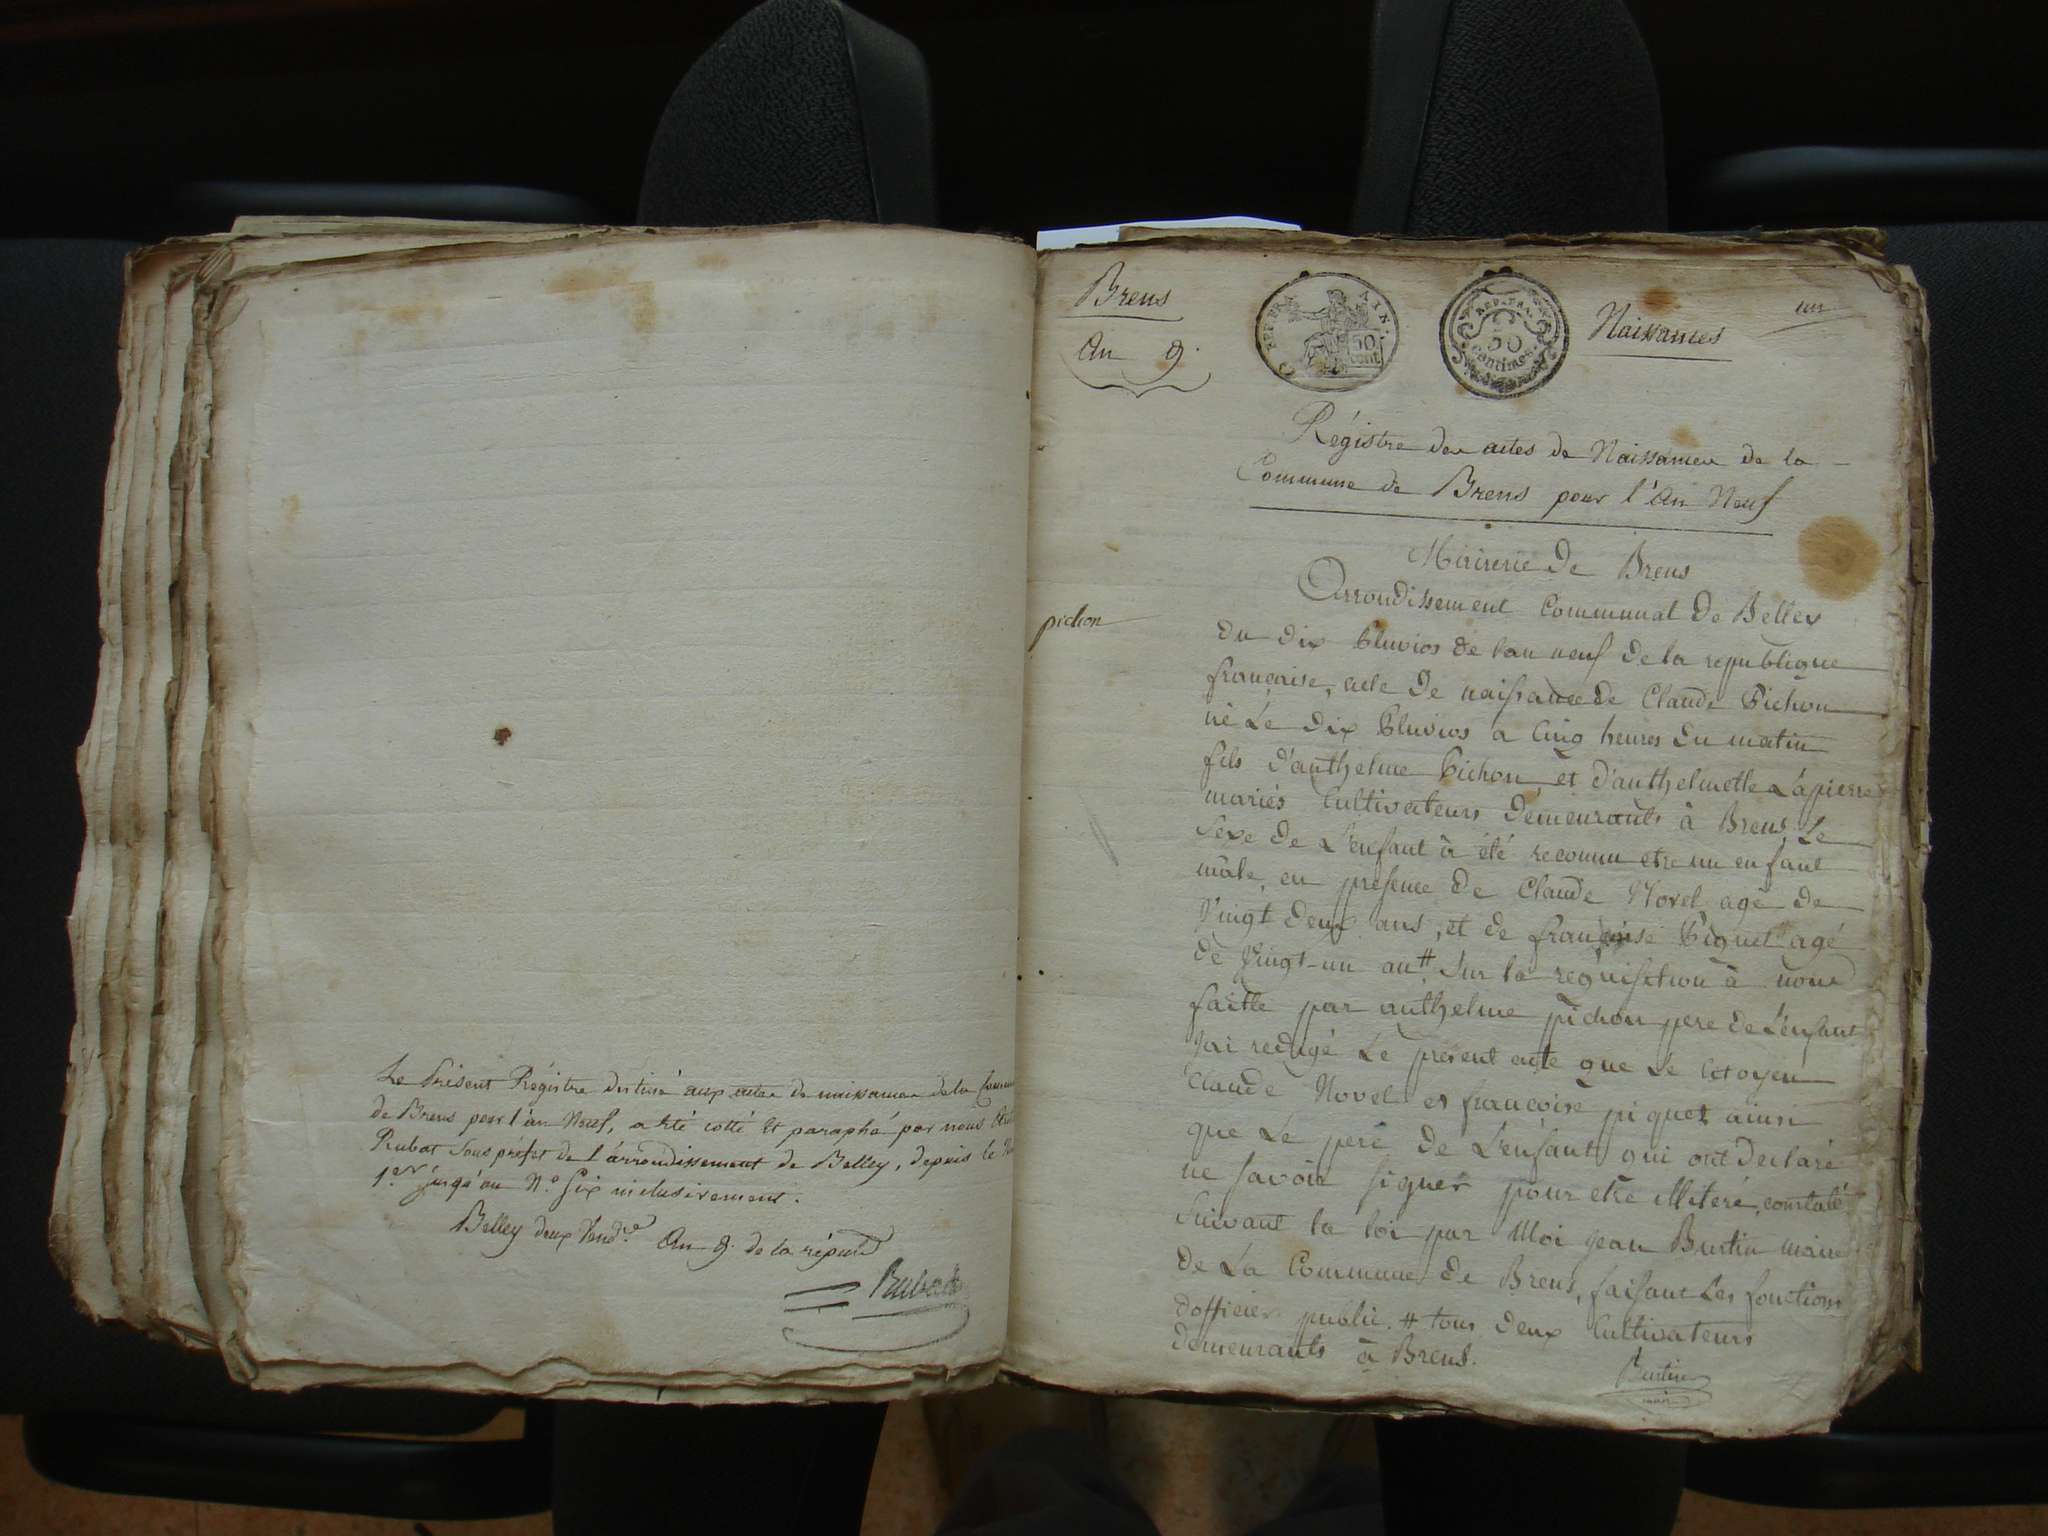 Le Présent Régistre destiné aux actes de naissances de la
de Brens pour l'an Neuf, a été cotté et paraphé par nous
Rubat Sous préfet de l'arrondissement de Belley, depuis le
1er jusqu'au N.o Six inclusivement.
Belley deux Vend.re An 9. de la répub
Rubat
Brens
An 9.
REP. FRA
AIN.
50
cent
REP. FRA.
50
centimes.
Naissances
un
Régistre des actes de Naissances de la
Commune de Brens pour l'An Neuf
Mairerie de Brens
Arrondissement Communal de Belley
pichon
du dix Pluvios de l'an neuf de la republique
française, acte de naissance de Claude Pichon
né Le dix Pluvios a Cinq heures du matin
fils d'anthelme Pichon et d'anthelmette Lapierre
mariés Cultivateurs demeurants à Brens, Le
Sexe de L'enfant à été reconnu etre un enfant
mâle, en presence de Claude Novel agé de
Vingt deux ans, et de françoise Piquet agé
de Vingt-un an # Sur la requisition à nous
faitte par anthelme pichon pere de L'enfant
J'ai redigé Le present acte que Le Citoyen
Claude Novel et francoise piquet ainsi
que Le pere de L'enfant qui ont declaré
ne savoir signer pour etre illiteré, constaté
Suivant la loi par Moi jean Burtin maire
de La Commune de Brens, faisant Les fonctions
d'officier public. # tous deux Cultivateurs
demeurants à Brens.
Burtin
maire